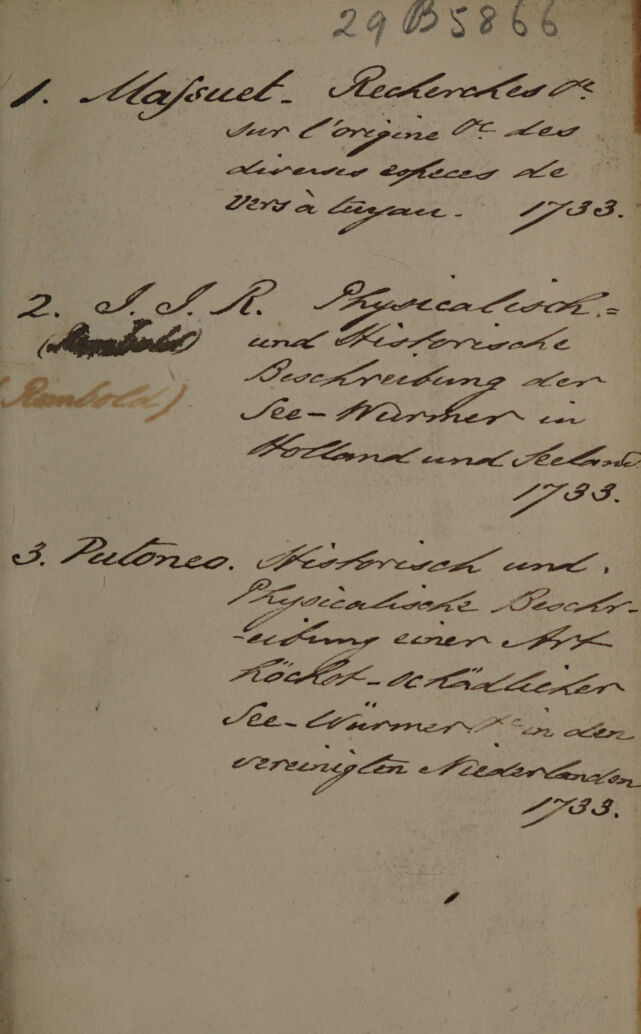 29 B 5866
1. Maſsuet - Recherches &c
sur l'origine &c des
diverses especes de
vers à tuyau. 1733.
2. J. J. R. Physicalisch =
(Rembold) und Historische
(Rembold) Beschreibung der
See-Wurmer in
Holland und Seeland
1733.
3. Putoneo. Historisch und
Physicalische Beschr-
-eibung einer Art
höchst-schädlicher
See-Würmer &c in den
vereinigten Niederlanden
1733.